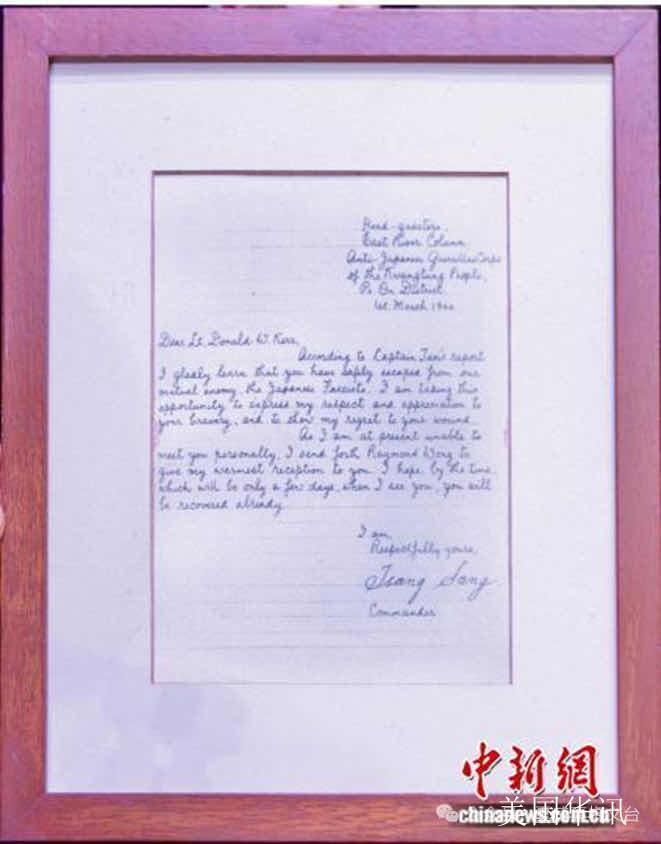 Head-quarters,
East River Column
Anti-Japanese Guerillas Corps
of the Kwangtung People,
Po On District.
1st. March 1944
Dear Lt. Donald W. Kerr,
According to Captain Tan's report
I gladly learn that you have safely escaped from our
mutual enemy, the Japanese Fascists. I am taking this
opportunity to express my respect and appreciation to
your bravery, and to show my regret to your wound.
As I am at present unable to
meet you personally, I send forth Raymond Wong to
give my warmest reception to you. I hope, by the time,
which will be only a few days, when I see you, you will
be recovered already.
I am,
Respectfully yours,
Tsang Sang
Commander
中新網
美国华讯
台
chinanews.com.cn